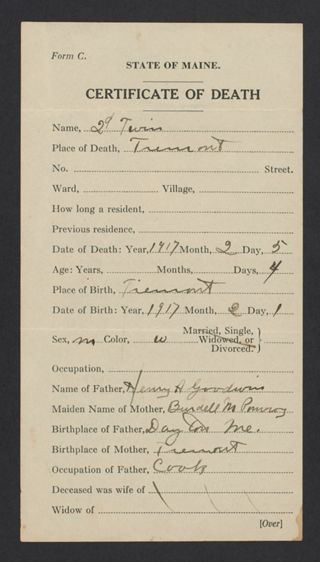 Form C.
STATE OF MAINE.
CERTIFICATE OF DEATH
Name, 2d Twin
Place of Death, Tremont
No. Street.
Ward, Village,
How long a resident,
Previous residence,
Date of Death: Year, 1917 Month, 2 Day, 5
Age: Years, Months, Days, 4
Place of Birth, Tremont
Date of Birth: Year, 1917 Month, 2 Day, 1
Sex, m Color, w Married, Single, Widowed, or Divorced.
Occupation,
Name of Father, Henry A Goodwin
Maiden Name of Mother, M
Birthplace of Father, Dayton Me.
Birthplace of Mother, Tremont
Occupation of Father, Cook
Deceased was wife of
Widow of
[Over]